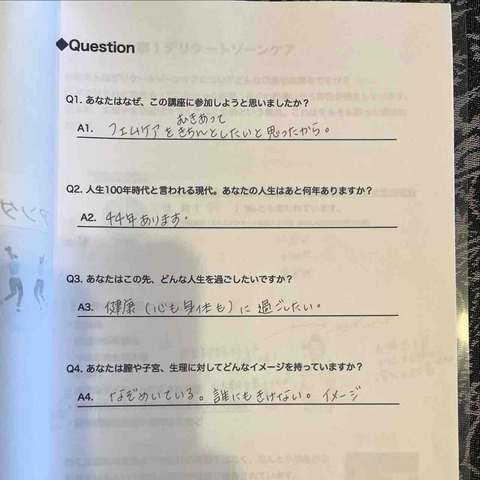 ◆Question
Q1. あなたはなぜ、この講座に参加しようと思いましたか？
むきあって
A1. フェムケアをきちんとしたいと思ったから。
Q2. 人生100年時代と言われる現代。あなたの人生はあと何年ありますか？
A2. 44年あります。
Q3. あなたはこの先、どんな人生を過ごしたいですか？
A3. 健康（心も身体も）に過ごしたい。
Q4. あなたは膣や子宮、生理に対してどんなイメージを持っていますか？
A4. なぞめいている。誰にもきけない。イメージ